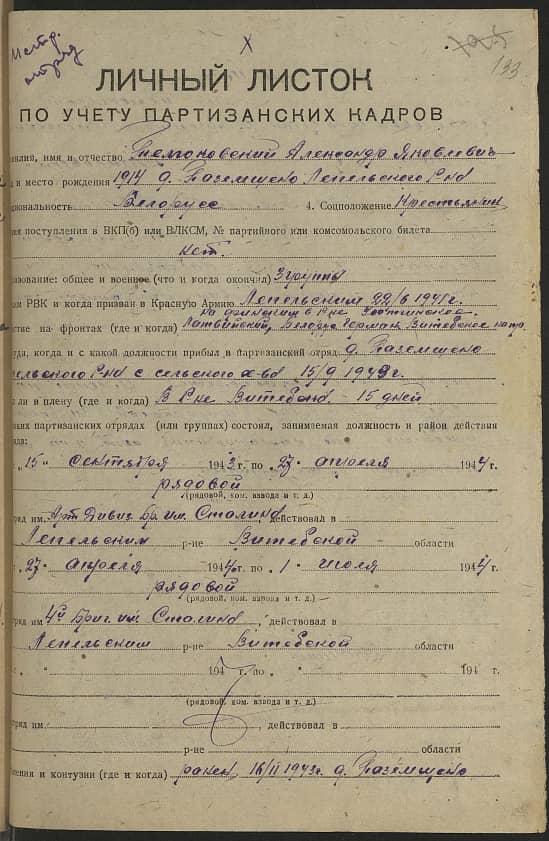 133
ЛИЧНЫЙ ЛИСТОК
ПО УЧЕТУ ПАРТИЗАНСКИХ КАДРОВ
милия, имя и отчество Александр Яковлевич
и место рождения 1914 д. Лепельского Р-на
циональность Белорусс 4. Соцположение Крестьянин
мя поступления в ВКП(б) или ВЛКСМ, № партийного или комсомольского билета
нет.
зование: общее и военное (что и когда окончил) 3 группы
им РВК и когда призван в Красную Армию Лепельским 22/6 1941г.
стие на фронтах (где и когда) Латвийской, Витебское напр.
уда, когда и с какой должности прибыл в партизанский отряд д.
пельского Р-на с сельского х-ва 15/9 1943г.
ли в плену (где и когда) В Р-не Витебска - 15 дней
ких партизанских отрядах (или группах) состоял, занимаемая должность и район действия
яда:
„15" сентября 1943 г. по „27" апреля 1944 г.
рядовой
(рядовой, ком. взвода и т. д.)
ряд им. Арт. Дивиз. Бр. им. Сталина, действовал в
Лепельским р-не Витебской области
„27" апреля 1944 г. по „1" июля 1944 г.
рядовой
(рядовой, ком. взвода и т. д.)
ряд им. 4й Бриг. им. Сталина, действовал в
Лепельским р-не Витебской области
„ " 194 г. по „ " 194 г.
(рядовой, ком. взвода и т. д.)
ряд им. , действовал в
р-не области
нения и контузии (где и когда) ранен 16/II 1943г. д.